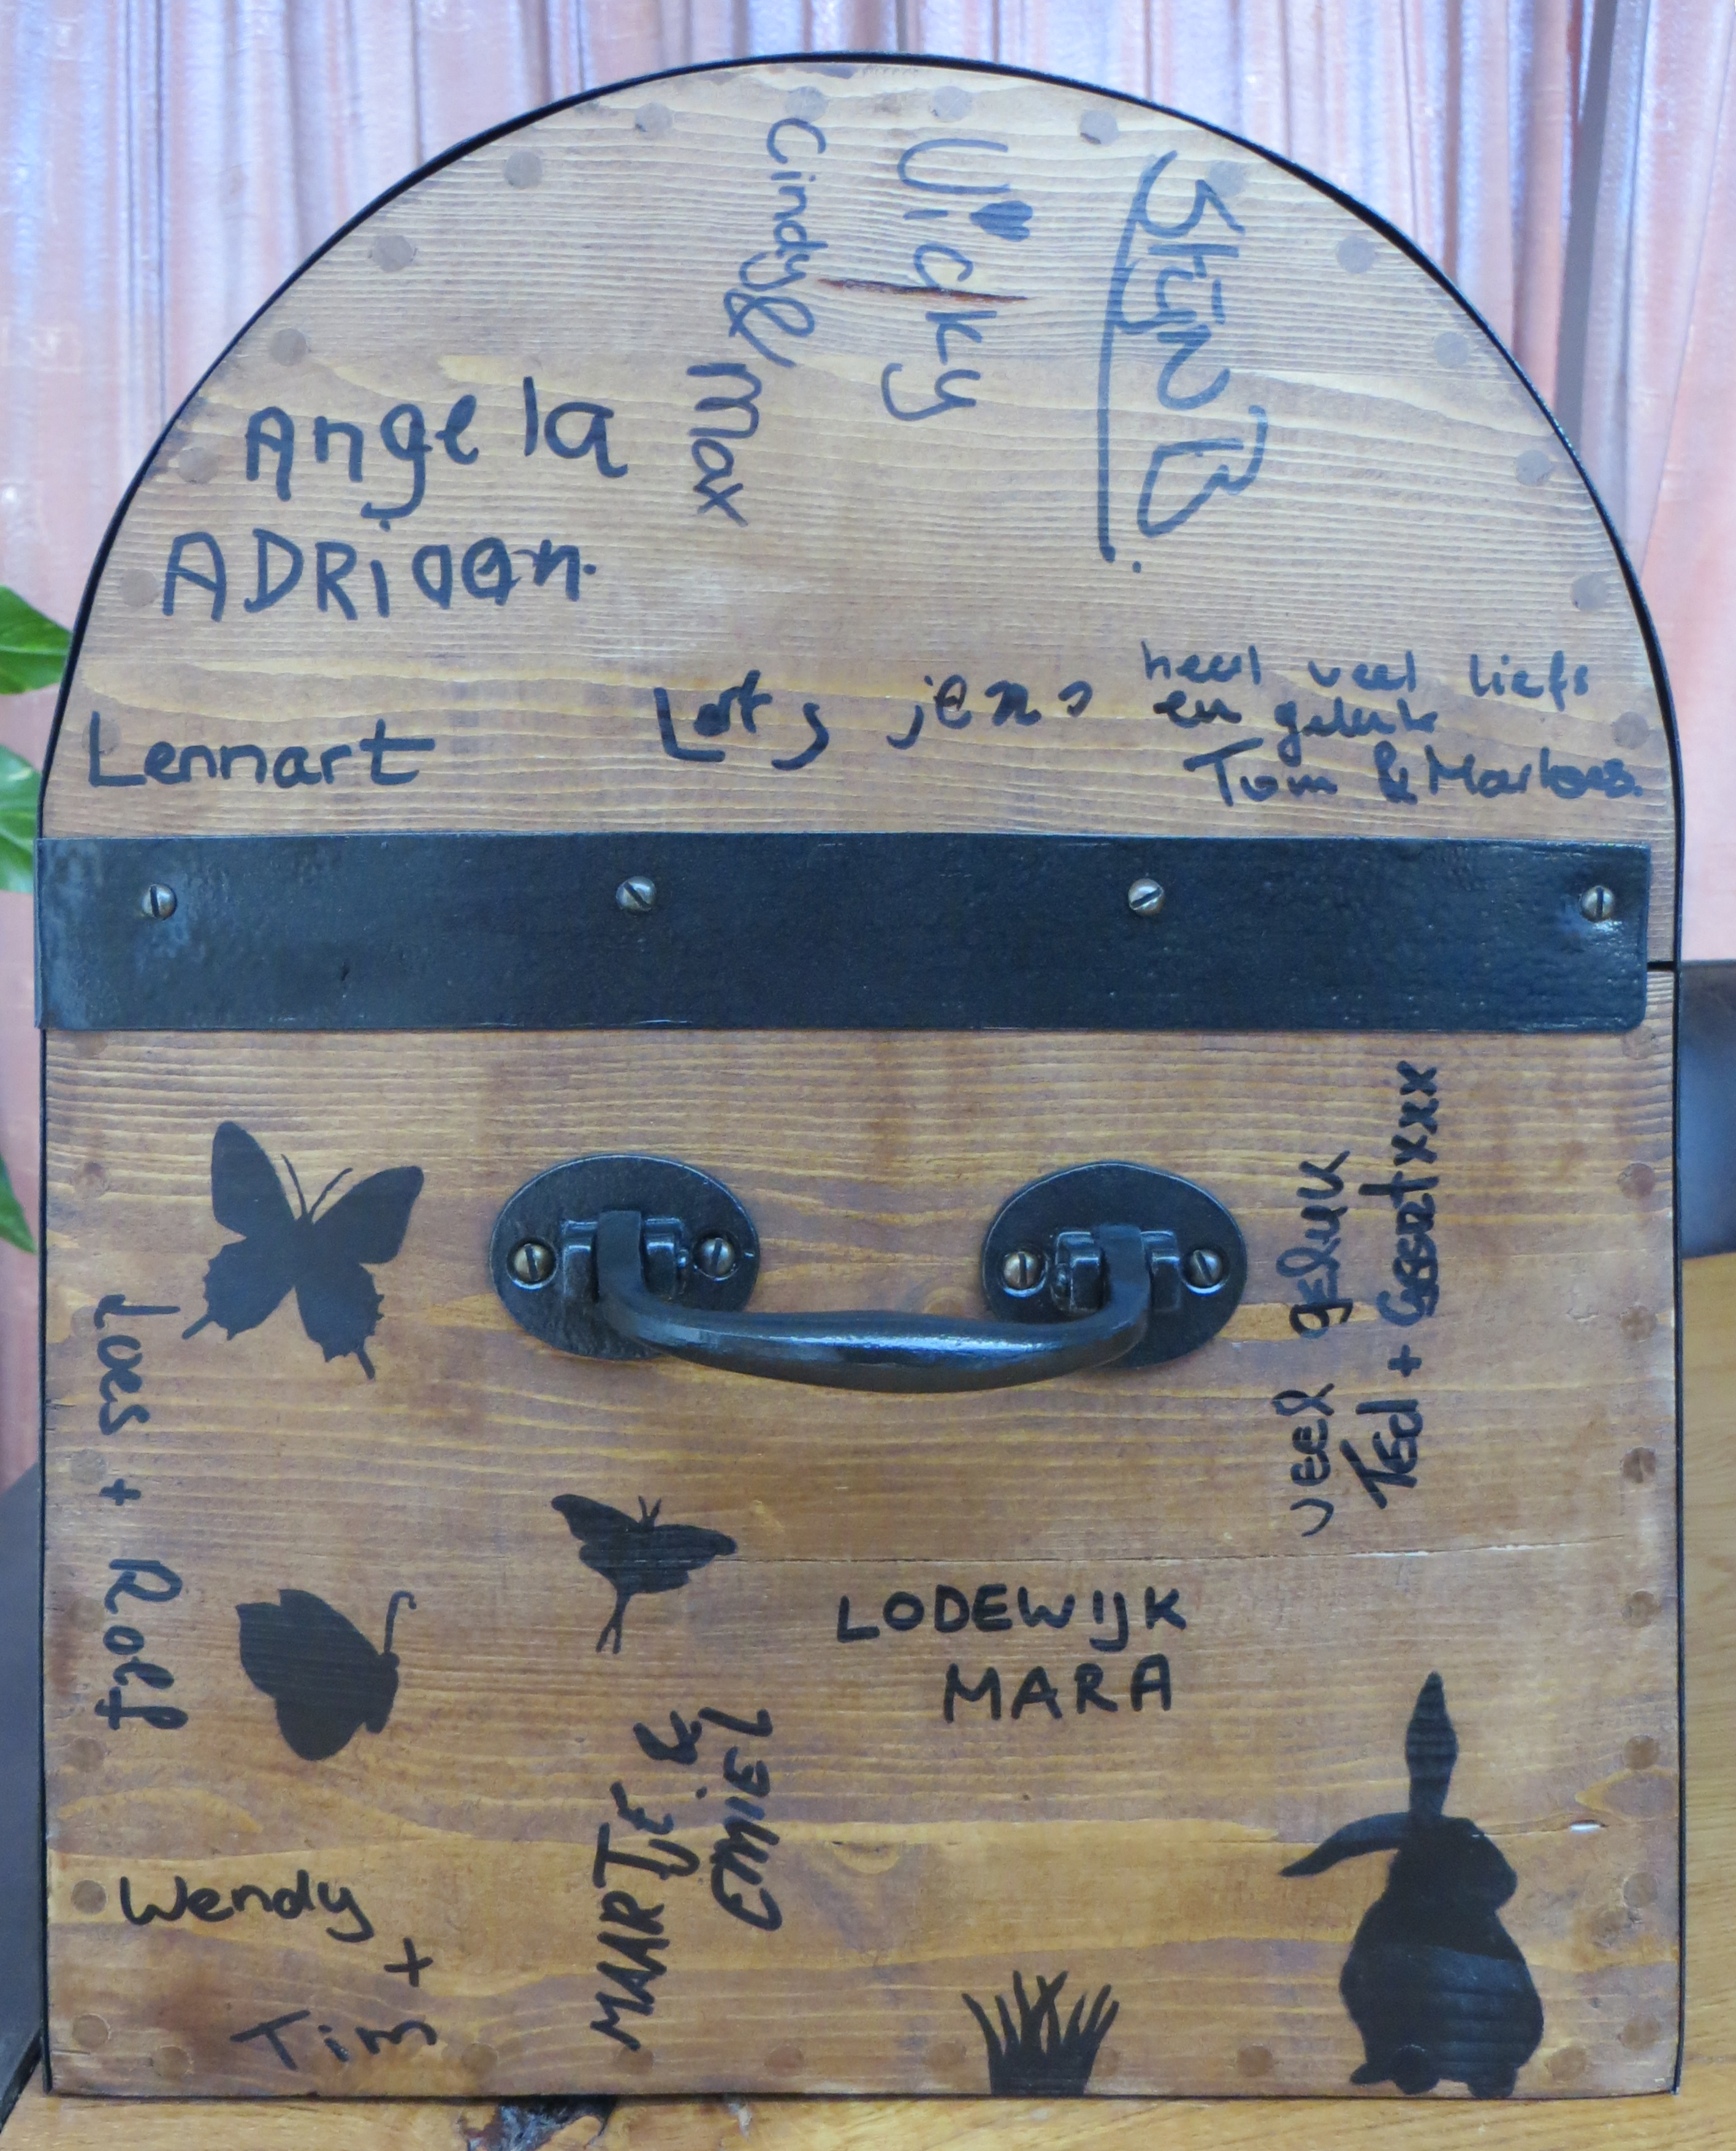 Cindy &
Max
Vicky
Stijn B.
Angela
ADRiaan.
Lennart
Lots jens
heel veel liefs
en geluk
Tom & Marloes.
veel geluk
Ted +
Loes + Roef
LODEWIJK
MARA
MAARTJE &
EMIEL
Wendy
+
Tim